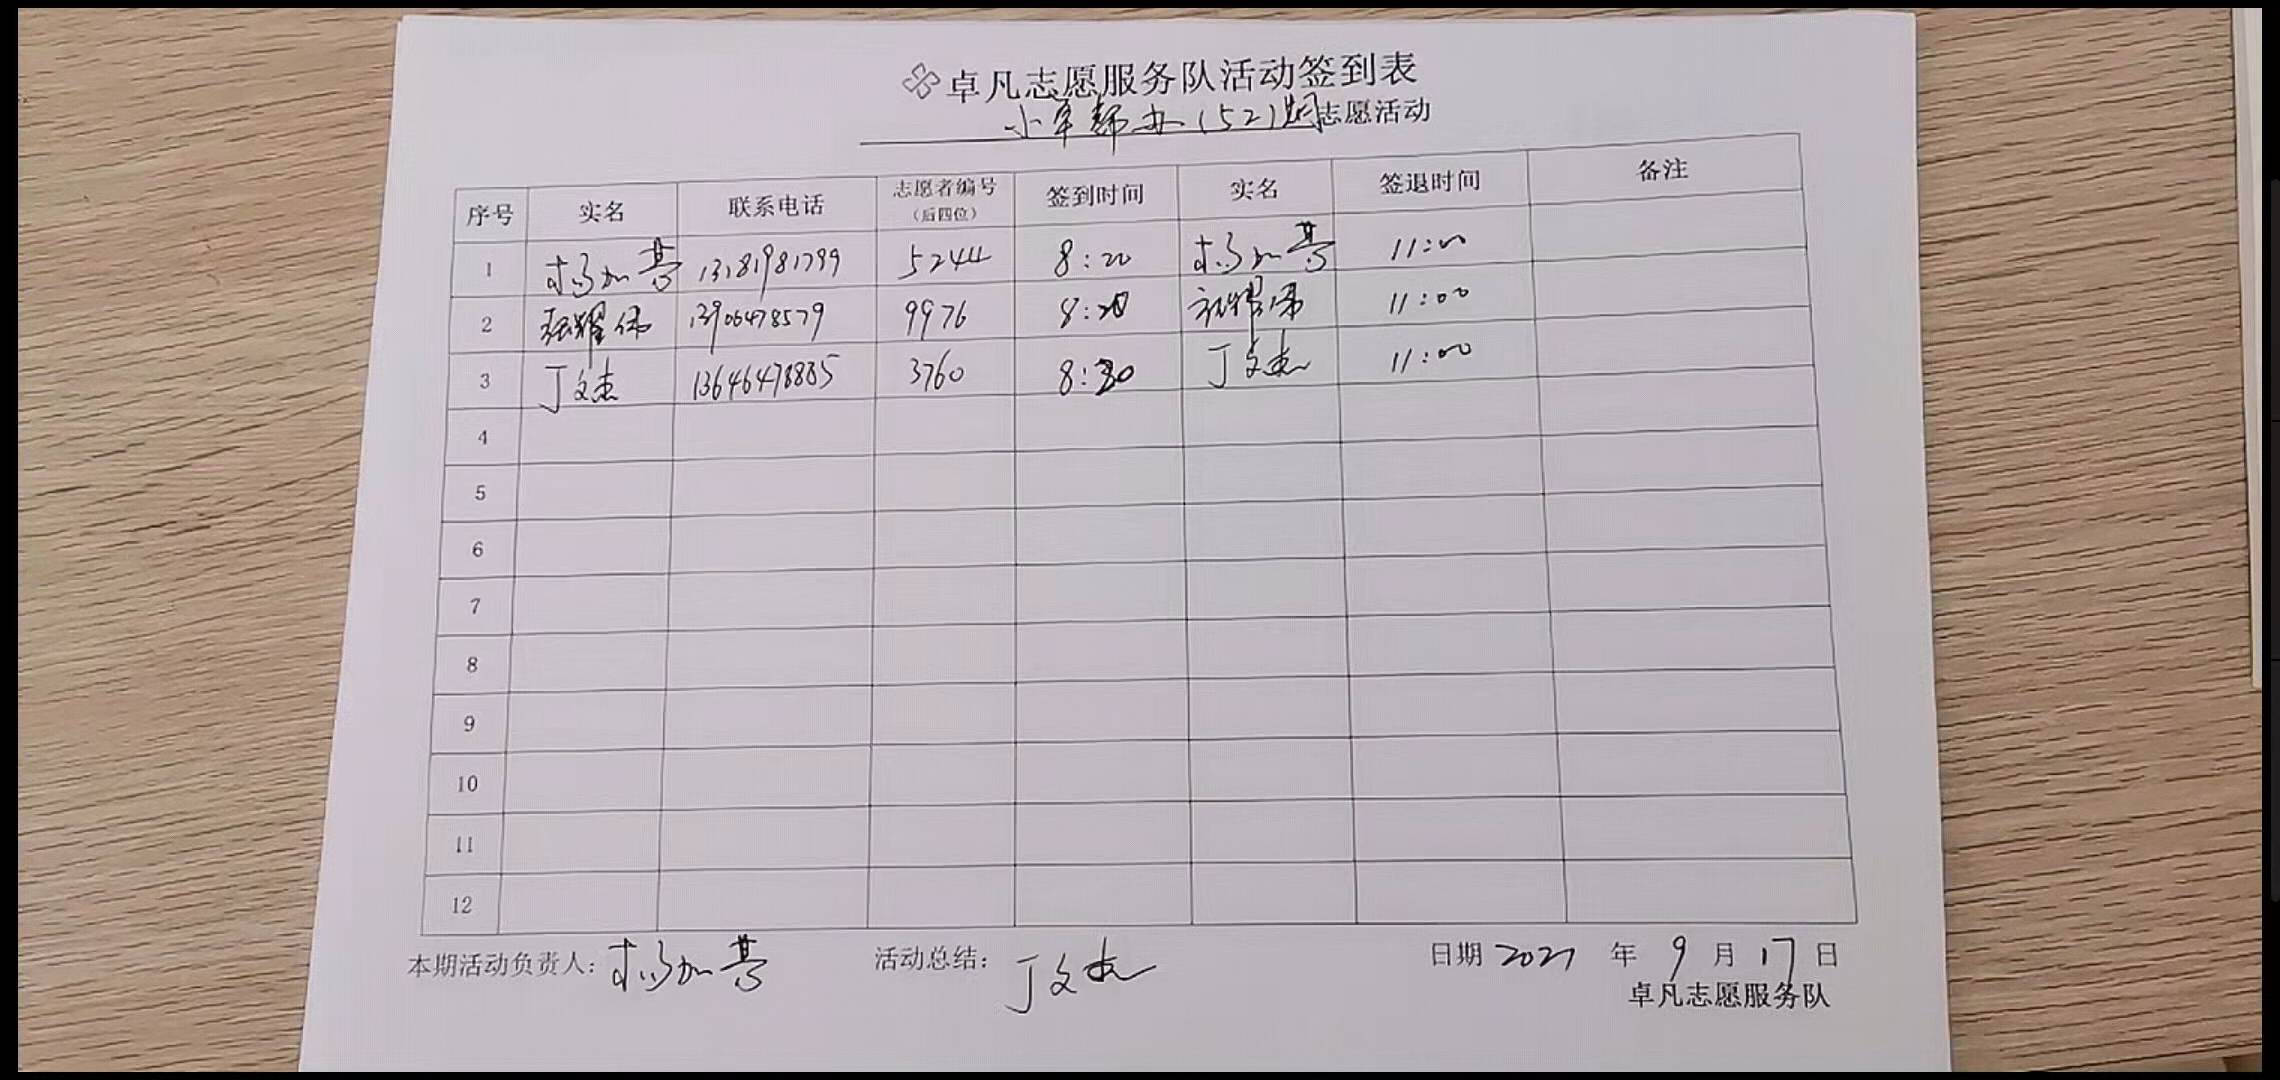 卓凡志愿服务队活动签到表
小军帮办(52)期志愿活动
序号 实名 联系电话 志愿者编号（后四位） 签到时间 实名 签退时间 备注
1 13181981799 5244 8:20 11:00
2 张耀伟 13906478579 9976 8:20 张耀伟 11:00
3 丁文杰 13646478885 3760 8:30 丁文杰 11:00
4
5
6
7
8
9
10
11
12
本期活动负责人： 活动总结：丁文杰 日期 2021 年 9 月 17 日
卓凡志愿服务队